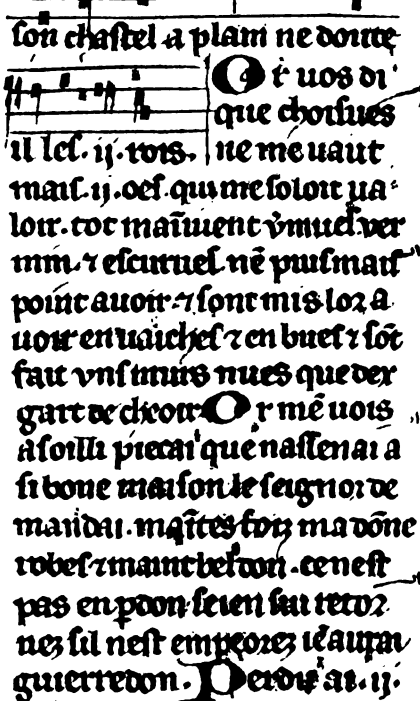 son chastel a plain ne doute
Or uos di
que choisues
il les .ij. rois. ne me uaut
mais .ij. oes. qui me soloit ua
loir. tot
mm. ⁊ escuruel. nē plus mais
point auoir. ⁊ sont mis lor a
uoir en uaiches ⁊ en bues ⁊ sōt
fait vns murs nues que dex
gart de cheoir Or mē uois
a soilli piecai que nassenai a
si bone maison le seignor de
mandai. ma dōne
robes ⁊ maint bel don. ce nest
pas en pdon seien sui retor
nez sil nest empeorez
guierredon. Perdu ai .ij.